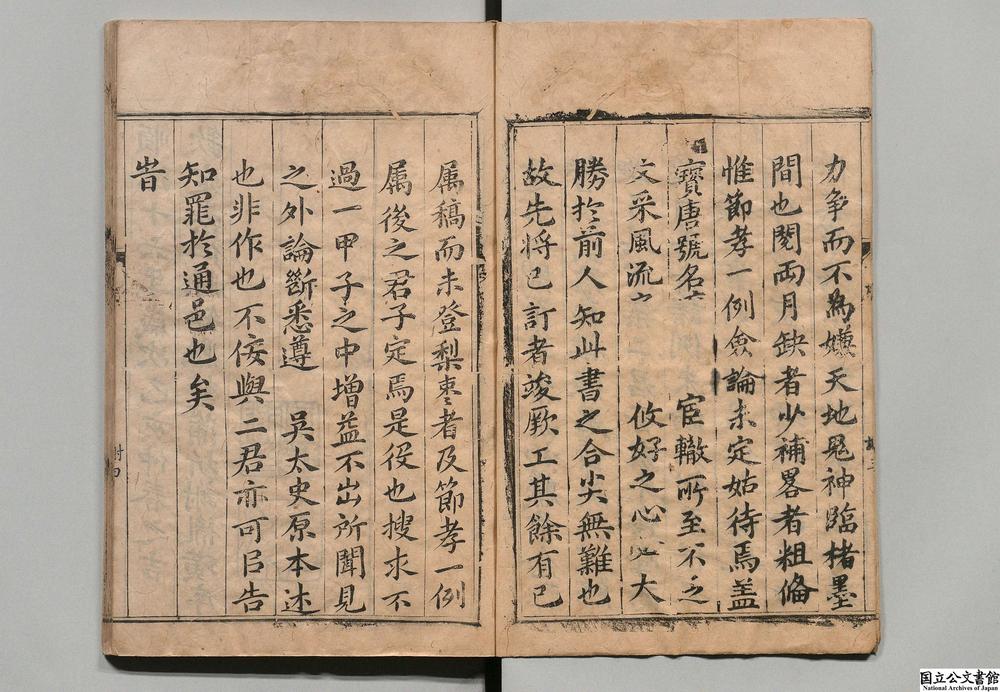 力争而不為嫌天地鬼神臨楮墨
間也閱兩月缺者少補畧者粗俻
惟節孝一例僉論未定姑待焉盖
寳唐號名 宦轍所至不乏
文采風流 攸好之心必大
勝扵前人知此書之合尖無難也
故先将已訂者竣厥工其餘有已
属稿而未登梨枣者及節孝一例
属後之君子定焉是役也搜求不
過一甲子之中增益不出所聞見
之外論斷悉遵 吴太史原本述
也非作也不佞與二君亦可㠯告
知罪扵通邑也矣
旹
国立公文書館
National Archives of Japan